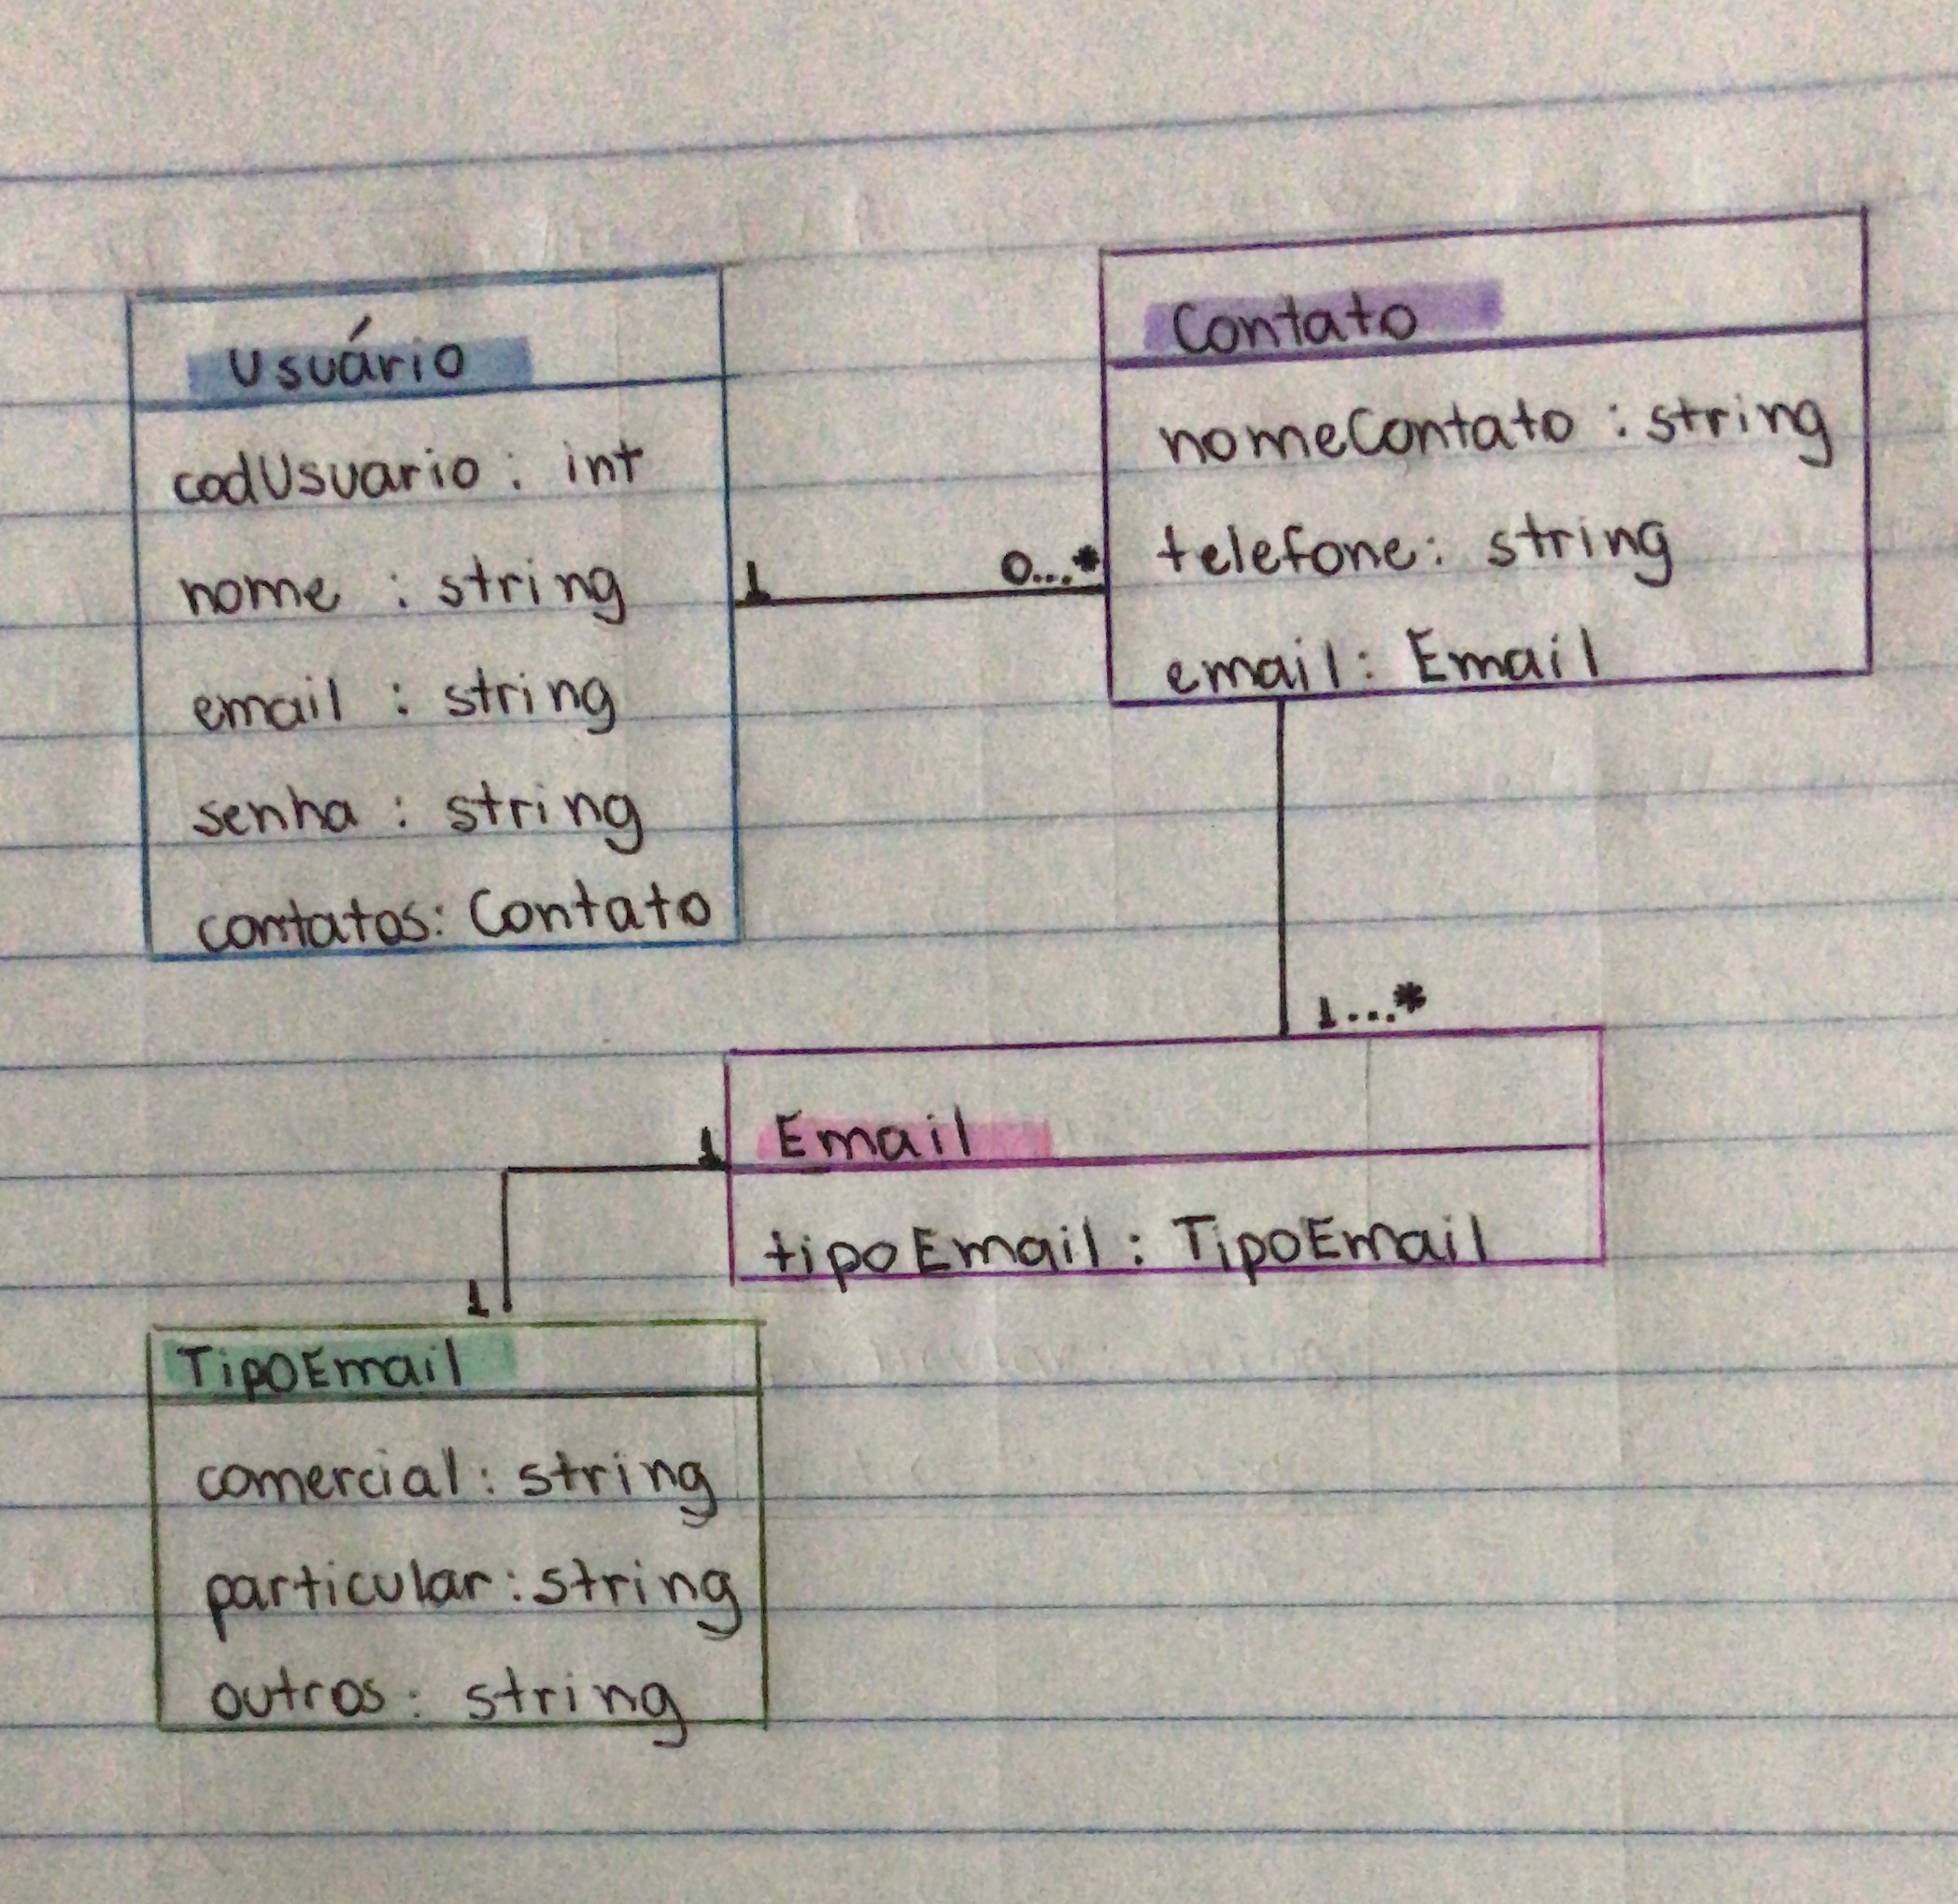 Usuário
codUsuario : int
nome : string
email : string
senha : string
contatos: Contato
1
0...*
Contato
nomeContato : string
telefone: string
email: Email
1...*
Email
tipoEmail : TipoEmail
1
1
TipoEmail
comercial: string
particular: string
outros: string